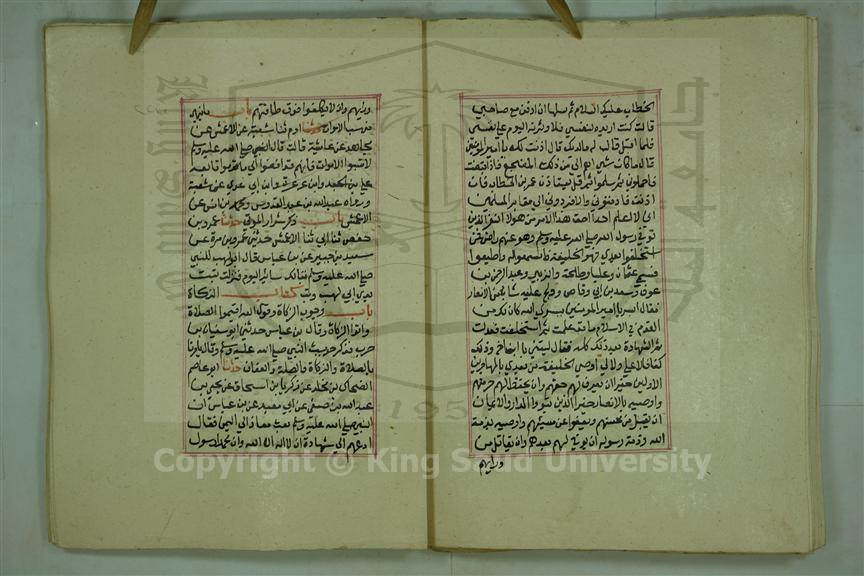 الخطاب عليك السلام ثم سلها ان ادفن مع صاحبي
قالت كنت اريده لنفسي فلاوثرنه اليوم علي نفسي
فلما اقبل قال له ما لديك قال اذنت لك يا امير المومنين
قال ما كان شي اهم الي من ذلك المضجع فاذا قبضت
فاحملوني ثم سلموا ثم قل يستاذن عمر بن الخطاب فان
اذنت لي فادفنوني والا فردوني الي مقابر المسلمين
اني لا اعلم احدا احق بهذا الامر من هولا النفر الذين
توفي رسول الله صلي الله عليه وسلم وهو عنهم راض فمن
استخلفوا بعدي فهو الخليفة فاسمعوا له واطيعوا
فسمي عثمان وعليا وطلحة والزبير وعبد الرحمن بن
عوف وسعد بن ابي وقاص وولج عليه شاب من الانصار
فقال ابشر يا امير المومنين ببشري الله كان لك من
القدم في الاسلام ما قد علمت ثم استخلفت فعدلت
ثم الشهادة بعد ذلك كله فقال ليتني يا ابن اخي وذلك
كفافا لا علي ولا لي اوصي الخليفة من بعدي بالمهاجرين
الاولين خيرا ان يعرف لهم حقهم وان يحفظ لهم حرمتهم
واوصيه بالانصار خيرا الذين تبوءوا الدار والايمان
ان يقبل من محسنهم ويعفوا عن مسيئهم واوصيه بذمة
الله وذمة رسوله ان يوفي لهم بعهدهم وان يقاتل من
ورايهم
ورايهم وان لا يكلفوا فوق طاقتهم باب ما ينهي
من سب الاموات حدثنا ادم ثنا شعبة عن الاعمش عن
مجاهد عن عايشة قالت قال النبي صلي الله عليه وسلم
لا تسبوا الاموات فانهم قد افضوا الي ما قدموا تابعه
علي بن الجعد وابن عرعرة وابن ابي عدي عن شعبة
ورواه عبد الله بن عبد القدوس ومحمد بن انس عن
الاعمش باب ذكر شرار الموتي حدثنا عمر بن
حفص ثنا ابي ثنا الاعمش حدثني عمرو بن مرة عن
سعيد بن جبير عن بن عباس قال قال ابو لهب للنبي
صلي الله عليه وسلم تبا لك ساير اليوم فنزلت تبت
يدي ابي لهب وتب كتاب الزكاة
باب وجوب الزكاة وقول الله اقيموا الصلاة
واتوا الزكاة وقال بن عباس حدثني ابو سفيان بن
حرب فذكر حديث النبي صلي الله عليه وسلم وقال يامرنا
بالصلاة والزكاة والصلة والعفاف حدثنا ابو عاصم
الضحاك بن مخلد عن زكريا بن اسحاق عن يحيي بن
عبد الله بن صيفي عن ابي معبد عن بن عباس ان
النبي صلي الله عليه وسلم بعث معاذا الي اليمن فقال
ادعهم الي شهادة ان لا اله الا الله وان محمدا رسول
Copyright © King Saud University